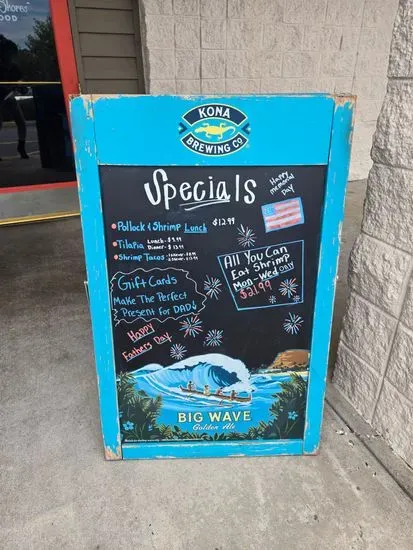 Shores
OOD
KONA
BREWING CO
Specials
Happy
memorial
day
Pollock & Shrimp Lunch $12.99
Tilapia Lunch - $9.99
Dinner - $13.99
Shrimp Tacos
All You Can
Eat Shrimp
Mon-Wed only
$21.99
Gift Cards
Make The Perfect
Present for DAD
Happy
Fathers Day
BIG WAVE
Golden Ale